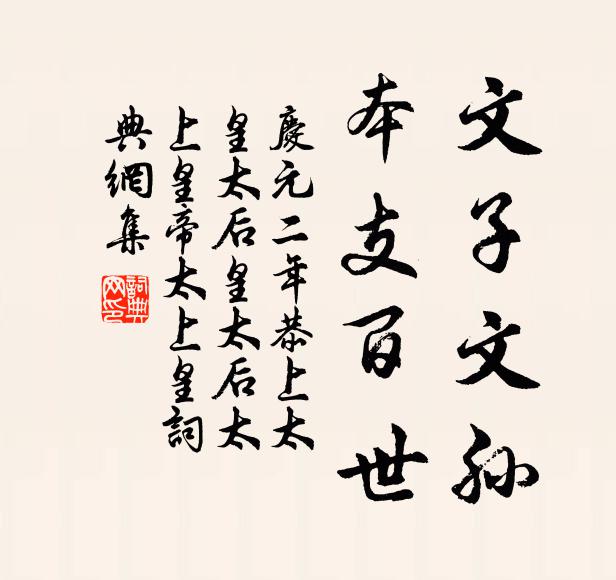 文子文孙
本支百世
慶元二年恭上太
皇太后皇太后太
上皇帝太上皇詞
典網集
詞典
网印